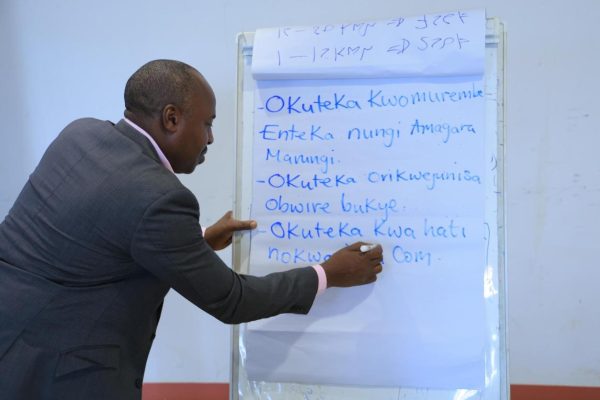 -OKuteKa Kwomurembe
EnteKa nungi Amagara
Marungi.
-OKuteKa orikwejunisa
obwire bukye.
-OKuteKa Kwa hati
Com.